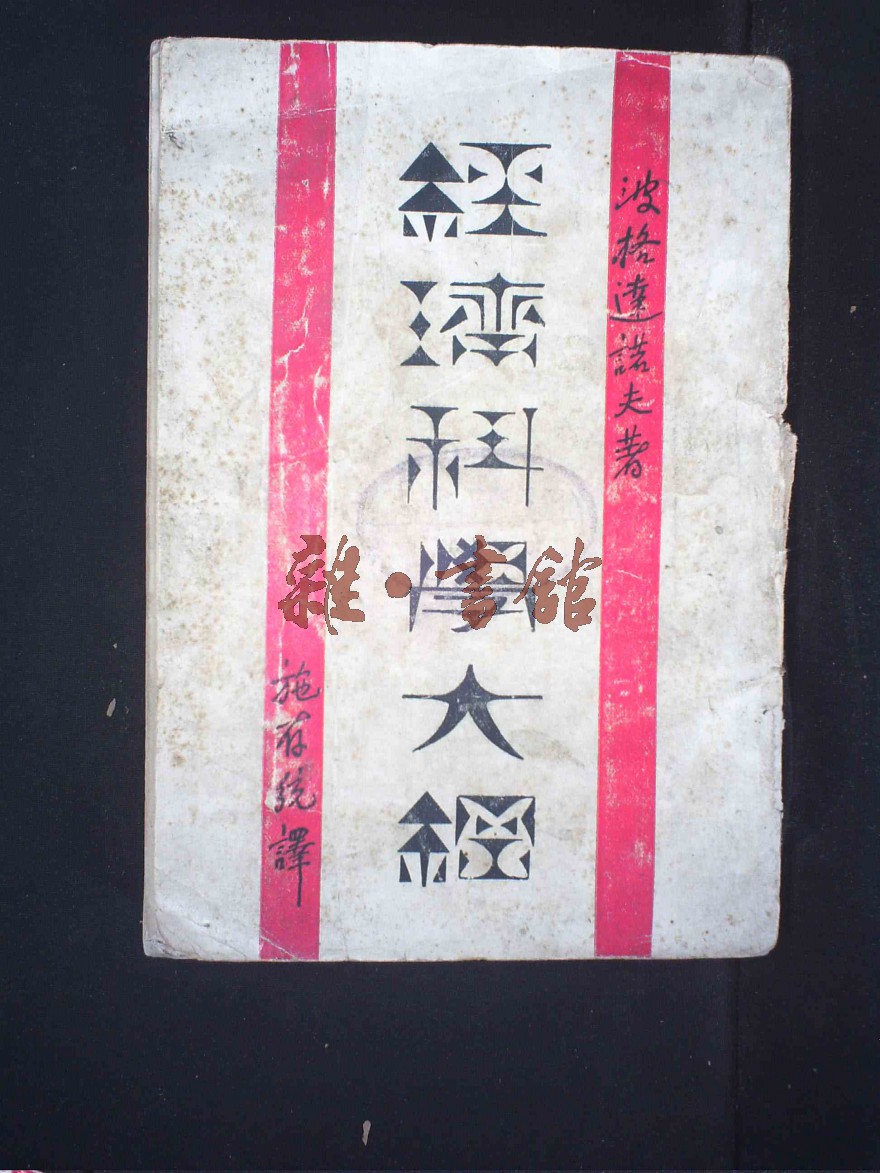 波格達諾夫著
經濟科學大綱
施存統譯
雜·書館